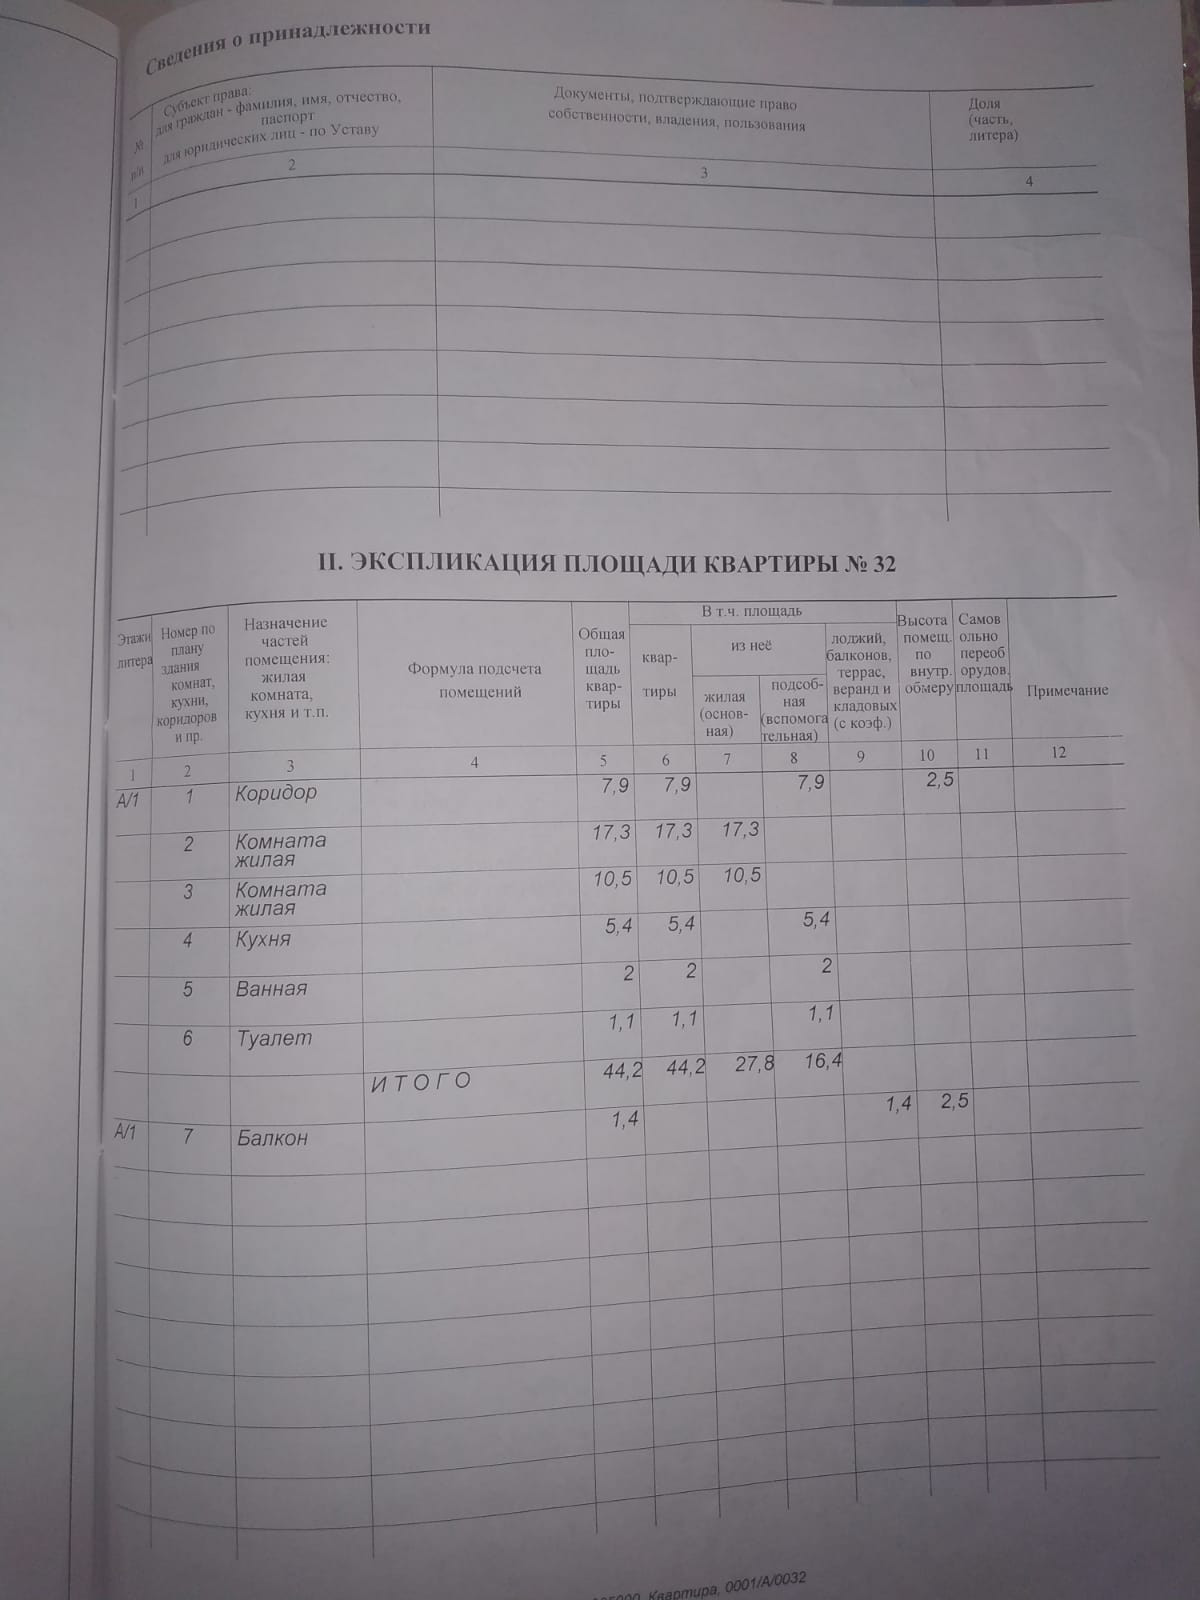 Сведения о принадлежности
№
п/п
Субъект права:
для граждан - фамилия, имя, отчество,
паспорт
для юридических лиц - по Уставу
Документы, подтверждающие право
собственности, владения, пользования
Доля
(часть,
литера)
1
2
3
4
II. ЭКСПЛИКАЦИЯ ПЛОЩАДИ КВАРТИРЫ № 32
Этажи
литера
Номер по
плану
здания
комнат,
кухни,
коридоров
и пр.
Назначение
частей
помещения:
жилая
комната,
кухня и т.п.
Формула подсчета
помещений
Общая
пло-
щадь
квар-
тиры
В т.ч. площадь
квар-
тиры
из неё
жилая
(основ-
ная)
подсоб-
ная
(вспомога
тельная)
лоджий,
балконов,
террас,
веранд и
кладовых
(с коэф.)
Высота
помещ.
по
внутр.
обмеру
Самов
ольно
переоб
орудов.
площадь
Примечание
1 2 3 4 5 6 7 8 9 10 11 12
А/1 1 Коридор 7,9 7,9 7,9 2,5
2 Комната
жилая 17,3 17,3 17,3
3 Комната
жилая 10,5 10,5 10,5
4 Кухня 5,4 5,4 5,4
5 Ванная 2 2 2
6 Туалет 1,1 1,1 1,1
ИТОГО 44,2 44,2 27,8 16,4
А/1 7 Балкон 1,4 1,4 2,5
Квартира, 0001/А/0032